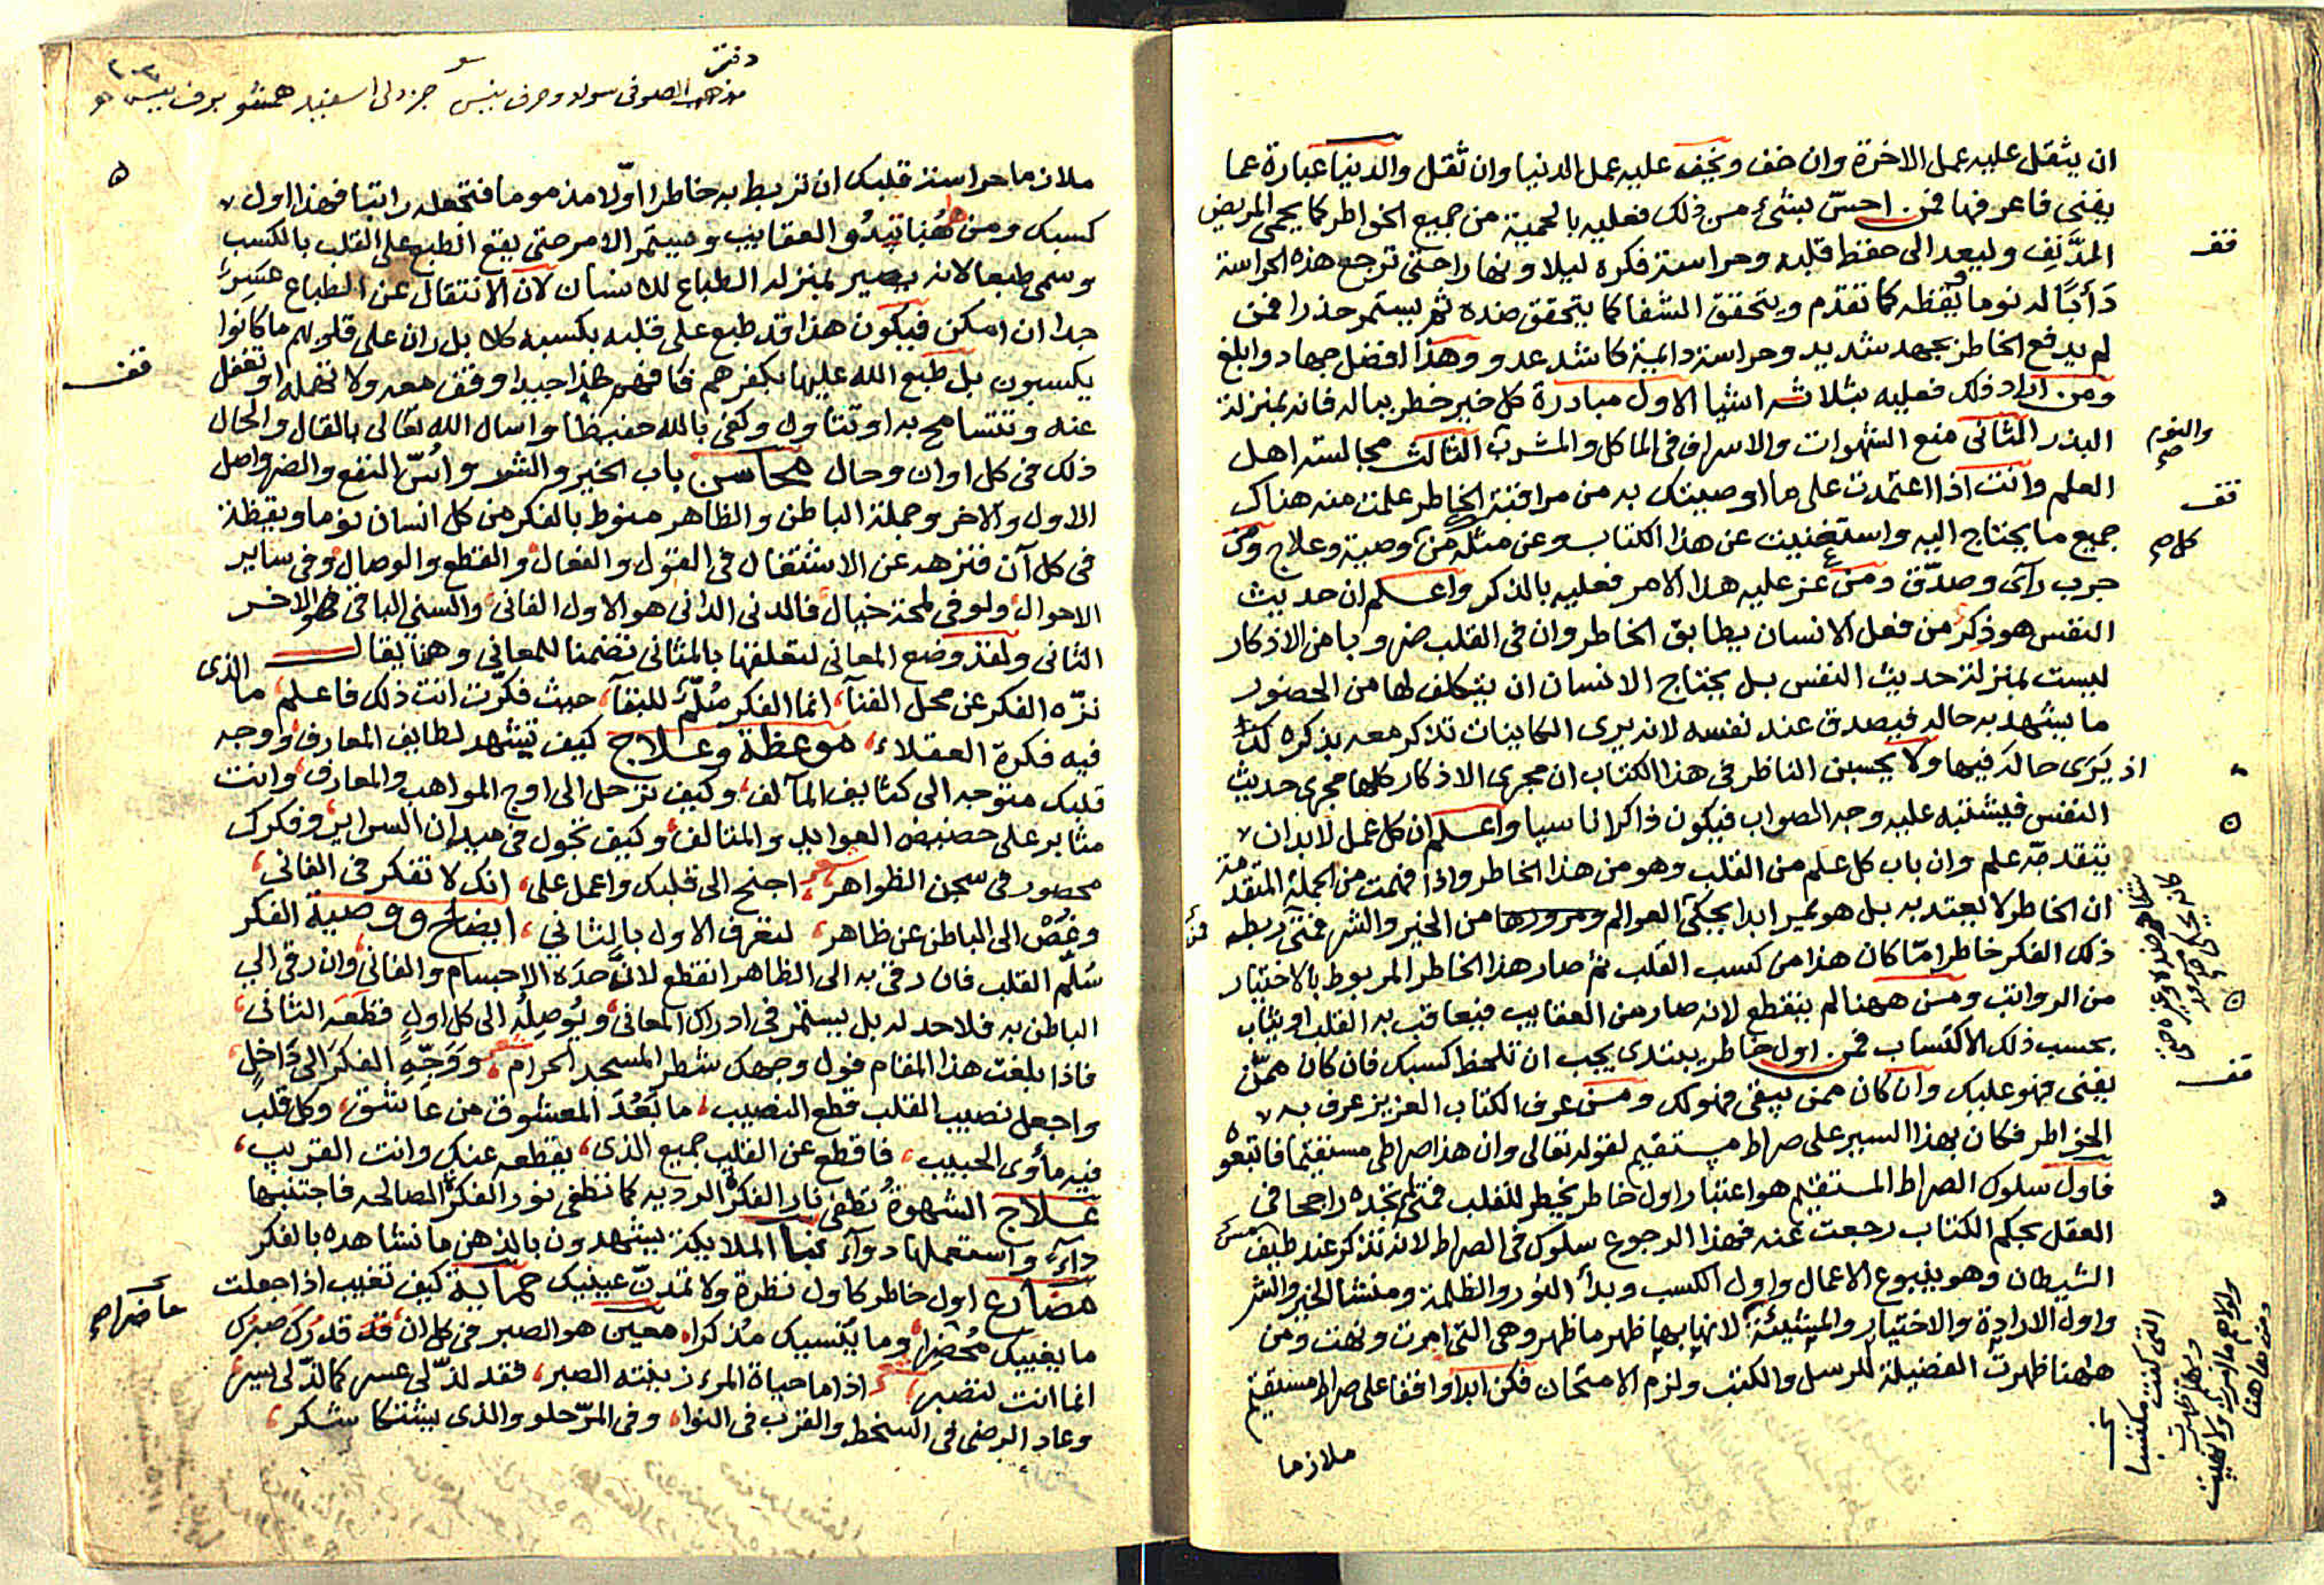 ان يثقل عليه عمل الاخرة وان خف ويخف عليه عمل الدنيا وان ثقل والدنيا عبارة عما
يفنى فاعرفها فمن احسّ بشئ من ذلك فعليه بالحمية من جميع الخواطر كما يحمى المريض
المدنف وليعد الى حفظ قلبه وحراسة فكره ليلا ونهارا حتى ترجع هذه الحراسة
دَأبًا له نوما ويقظه كما تقدم ويتحقق الشفا كما يتحقق ضده ثم يستمر حذرا فمن
لم يدفع الخاطر بجهد شديد وحراسة دائمية كاشد عدو وهذا افضل جهاد وابلغ
ومن اراد ذلك فعليه بثلاثه اشيا الاول مبادرة كل خير خطر بباله فانه بمنزلة
البذر الثانى منع الشهوات والاسراف فى الماكل والمشرب الثالث مجالسة اهل
العلم وانت اذا اعتمدت على ما اوصيتك به من مراقبة الخاطر علمت منه هناك
جميع ما يحتاج اليه واستغنيت عن هذا الكتاب وعن مثله من وصية وعلاج ومن
جرب رآى وصدّق ومن عز عليه هذا الامر فعليه بالذكر واعلم ان حديث
النفس هو ذِكرٌ من فعل الانسان يطابق الخاطر وان فى القلب ضروبا من الاذكار
ليست بمنزلة حديث النفس بل يحتاج الانسان ان يتكلف لها من الحضور
ما يشهد به حاله فيصدق عند نفسه لانه يرى الكاينات تذكر معه بذكره
اذ يَرَى حاله فيها ولا يحسبن الناظر فى هذا الكتاب ان مجرى الاذكار كلها مجرى حديث
النفس فيشتبه عليه وجه الصواب فيكون ذاكرا ناسيا واعلم ان كل عمل لا بد ان
يتقدمه علم وان باب كل علم من القلب وهو من هذا الخاطر واذا فهمت من الجملة المتقدمة
ان الخاطر لا يعتد به بل هو يمر ابدا بحكم العوالم ومرورها من الخير والشر فمتى ربطه
ذلك الفكر خاطرا مّا كان هذا من كسب القلب ثم صار هذا الخاطر المربوط بالاختيار
من الرواتب ومن ههنا لم ينقطع لانه صار من العقايب فيعاقب به القلب او يثاب
بحسب ذلك الاكتساب فمن اول خاطر يبتدى يجب ان تلحظ كسبك فان كان ممّن
يفنى فهو عليك وان كان ممن يبقى فهو لك ومن عرف الكتاب العزيز عرف به
الخواطر فكان بهذا السير على صراط مستقيم لقوله تعالى وان هذا صراطى مستقيما فاتبعوه
فاول سلوك الصراط المستقيم هو اعتبار اول خاطر يخطر للقلب فمتى لم تجده راجحا فى
العقل بحكم الكتاب رجعت عنه فهذا الرجوع سلوك فى الصراط لانه تذكر عند طيف
الشيطان وهو ينبوع الاعمال واول الكسب وبدأ النور والظلمة ومنشا الخير والشر
واول الارادة والاختيار والمشيئة لانها بها ظهر ما ظهر وهى التى امرت ونهت ومن
هاهنا ظهرت الفضيلة للرسل والكتب ولزم الامتحان فكن ابدا واقفا على صراط مستقيم
ملازما
قف
والنوم صح
قف
كل صح
قف
التى كنت مكتسبا
ملازما حراسة قلبك ان تربط به خاطرا اوّلا مذموما فتجعله راتبا فهذا اول
كسبك ومن هُنا تبدُو العقاييب ويستمر الامر حتى يقع الطبع على القلب بالكسب
وسمى طبعا لانه يصير بمنزلة الطباع للانسان لان الانتقال عن الطباع عَسِرٌ
جدا ان امكن فيكون هذا قد طبع على قلبه بكسبه كلا بل ران على قلوبهم ما كانوا
يكسبون بل طبع الله عليها بكفرهم فكا فهم هذا جيدا وقف معه ولا تهمله او تغفل
عنه وتتسامح به او تتاول وكفى بالله حفيظا واسال الله تعالى بالقال والحال
ذلك فى كل اوان وحال محاسن باب الخير والشر واُسّ النفع والضر واصل
الاول والاخر وجملة الباطن والظاهر منوط بالفكر من كل انسان نوما ويقظة
فى كل آن فتزهد عن الاشتغال فى القول والفعال والقطع والوصال وفى ساير
الاحوال ولو فى لمحة خيال فالدنى الدانى هو الاول الفانى والسنى الباقى هو الاخر
الثانى ولقد وضع المعانى لتعلقها بالمثانى تضمنا للمعاني وهنا يقال
نزّه الفكر عن محل الفنآ، انما الفكر سُلّمٌ للبقآ، حيث فكّرت انت ذلك فاعلم، ما الذى
فيه فكرة العقلاء، موعظة وعلاج كيف تشهد لطايف المعارف، ووجه
قلبك متوجه الى كثايف المآلف، وكيف ترحل الى اوج المواهب والمعارف، وانت
مثابر على حضيض العوايد والمتالف، وكيف تجول فى ميدان السراير، وفكرك
محصور فى سجن الظواهر، اجنح الى قلبك واعمل على، انك لا تفكر فى الفانى،
وغُصْ الى الباطن عن ظاهر، لتعرف الاول بالثاني، ايضاح ووصية الفكر
سُلّم القلب فان رقى به الى الظاهر انقطع لانَّ حدَه الاجسام والفانى، وان رقى الى
الباطن به فلا حد له بل يستمر فى ادراك المعانى، ويُوصِلُه الى كل اولٍ قطعَه الثانى،
فاذا بلغت هذا المقام فول وجهك شطر المسجد الحرام، ووَجّهِ الفكرَ الى دَاخلٍ،
واجعل نصيب القلب قطع النصيب، ما بَعُدَ المعشوق من عاشق، وكل قلب
فيه مأوى الحبيب، فاقطع عن القلب جميع الذى، يقطعه عنك وانت القريب،
علاج الشهوةُ تطفى نار الفكرة الرديه كما تطفى نور الفكرة الصالحه فاجتنبها
داءً واستعملها دوآء نبأ الملايكة يشهدون بالذهن ما نشاهده بالفكر
مضارع اول خاطر كاول نظرة ولا تمدنّ عينيك حماية كيف تغيب اذا جعلت
ما يغيبك مُحضِرا، وما يُنسيك مُذكرا، معين هو الصبر فى كل ان، قد قدرك صبرك
انما انت لتصبر، اذا ما حياة المرء زينته الصبر، فقد لذّ لى عسر كما لذّ لى يسر،
وعاد الرضى فى السخط والقرب فى النوا، وفى المرّ حلو والذى يشتكا شكر،
قف
حاضرا صح